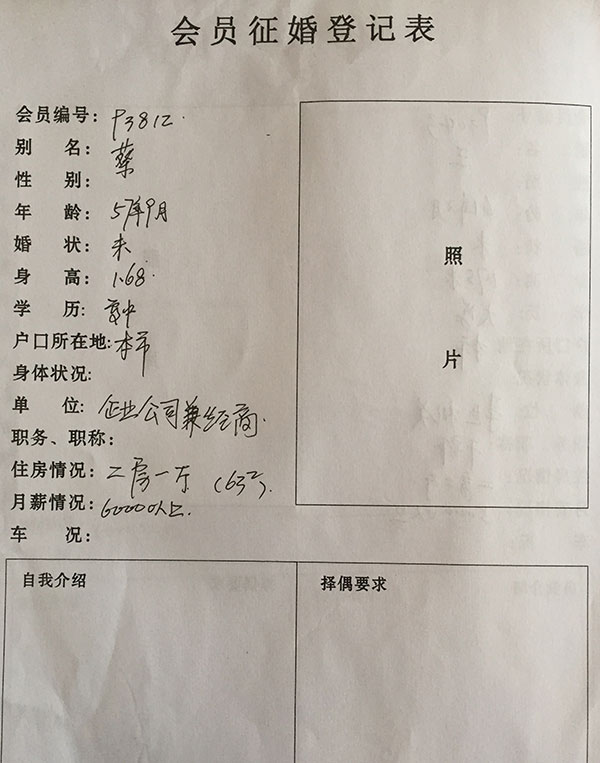 会员征婚登记表
会员编号: P3812.
别 名: 蔡
性 别:
年 龄: 57年9月
婚 状: 未
身 高: 1.68.
学 历: 高中
户口所在地: 本市
身体状况:
单 位: 企业公司兼经商.
职务、职称:
住房情况: 二房一厅 (63²).
月薪情况: 6000以上.
车 况:
照
片
自我介绍
择偶要求